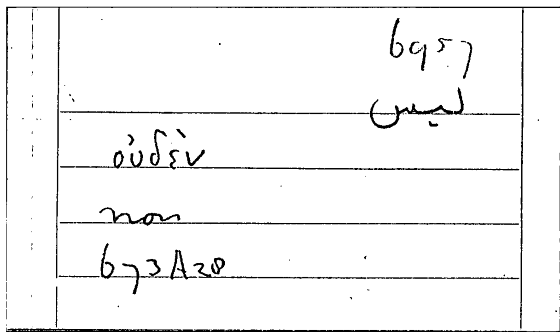 6957
ليس
οὐδὲν
non
673A28